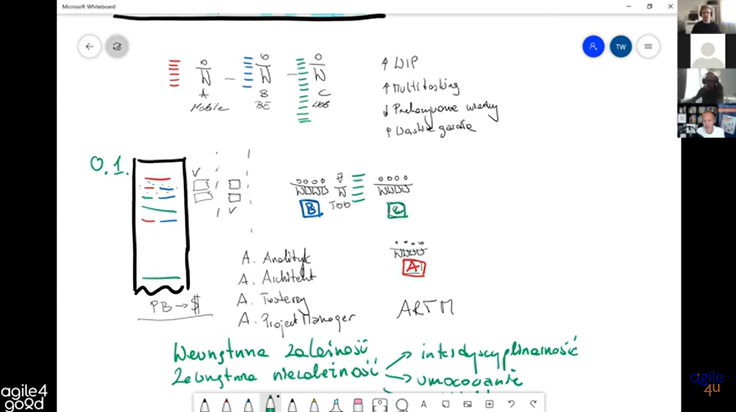 Microsoft Whiteboard
TW
A
B
C
Mobile
BE
WEB
↑ WIP
↑ Multitasking
↓ Przekazywanie wiedzy
↑ Wąskie gardła
0.1.
B
TOO
C
A
PB → $
A. Analityk
A. Architekt
A. Testerzy
A. Project Manager
ARTM
Wewnętrzna zależność
Zewnętrzna niezależność
→ interdyscyplinarność
→ umocowanie
agile4
good
agile
4u